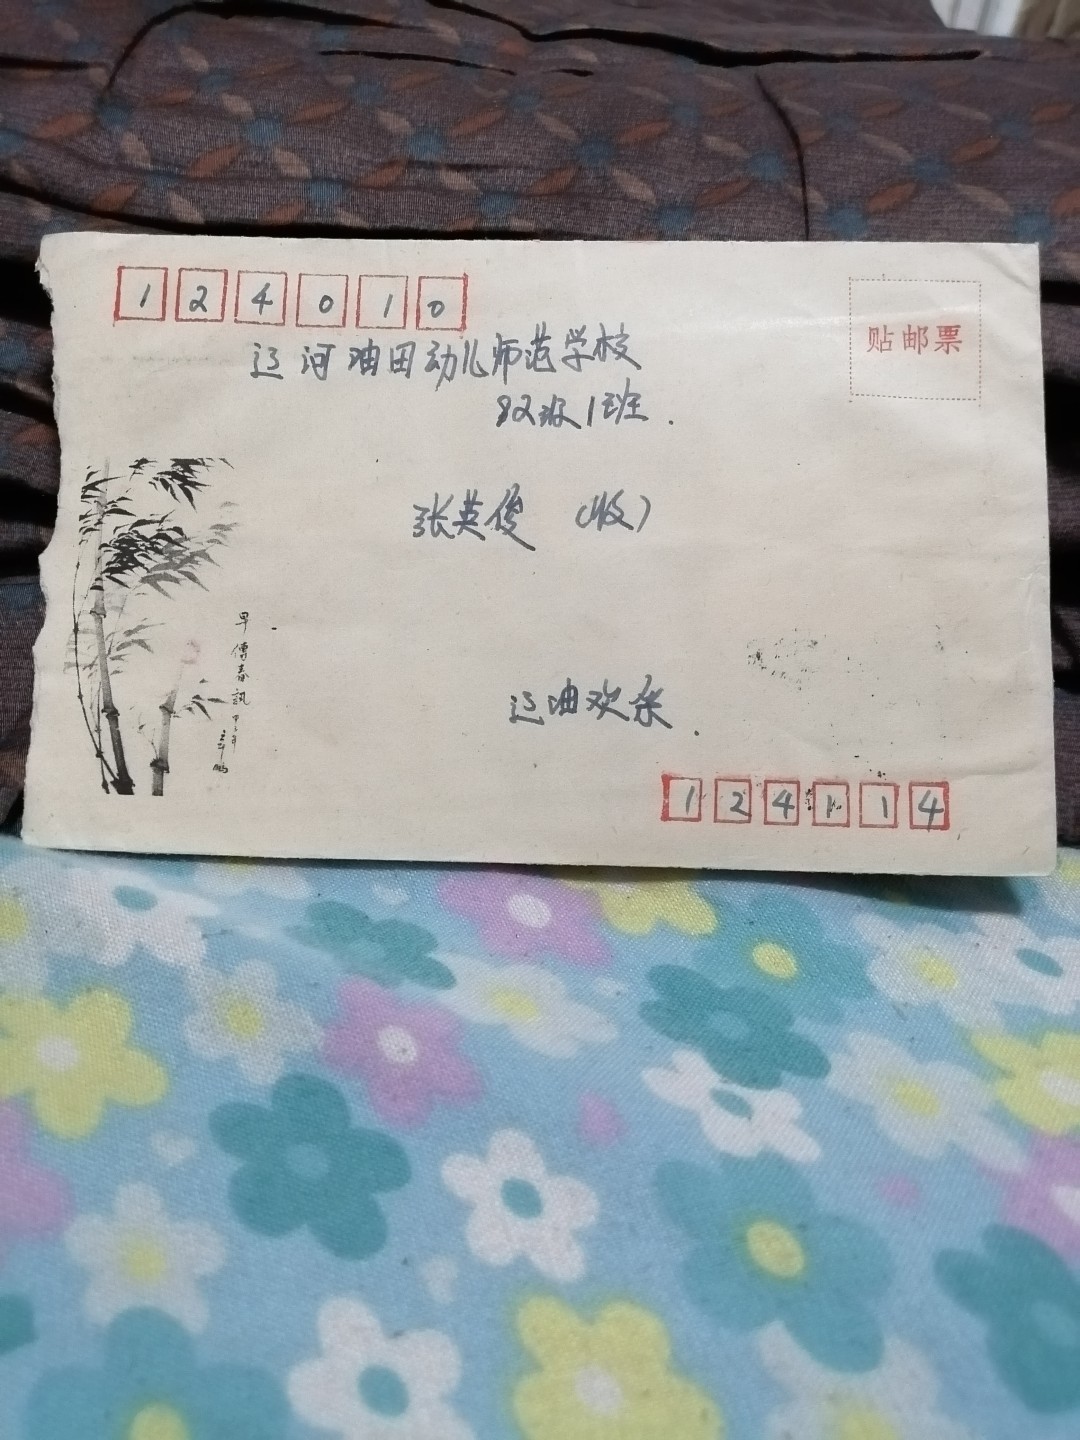 124010
贴邮票
辽河油田幼儿师范学校
82级1班.
张英俊 (收)
早傳春訊
辽油欢采.
124114